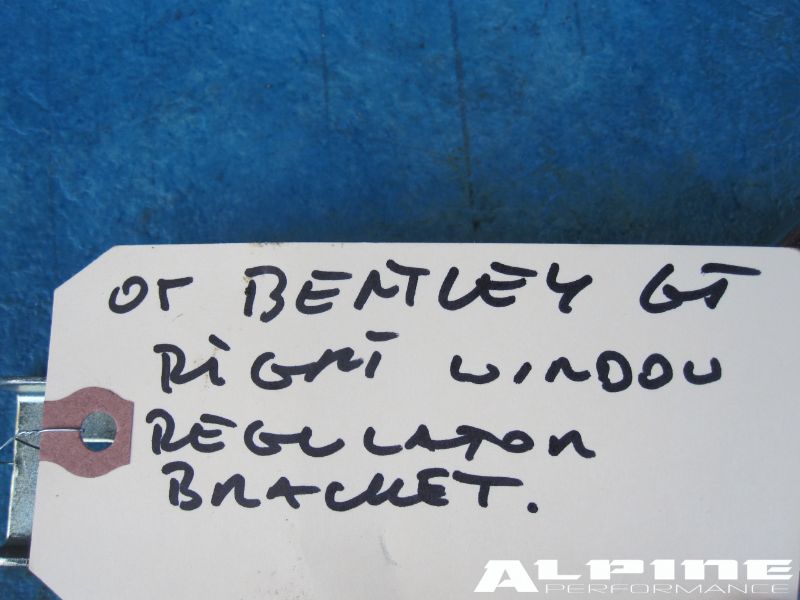 05 BENTLEY GT
RIGHT WINDOW
REGULATOR
BRACKET.
ALPINE
PERFORMANCE